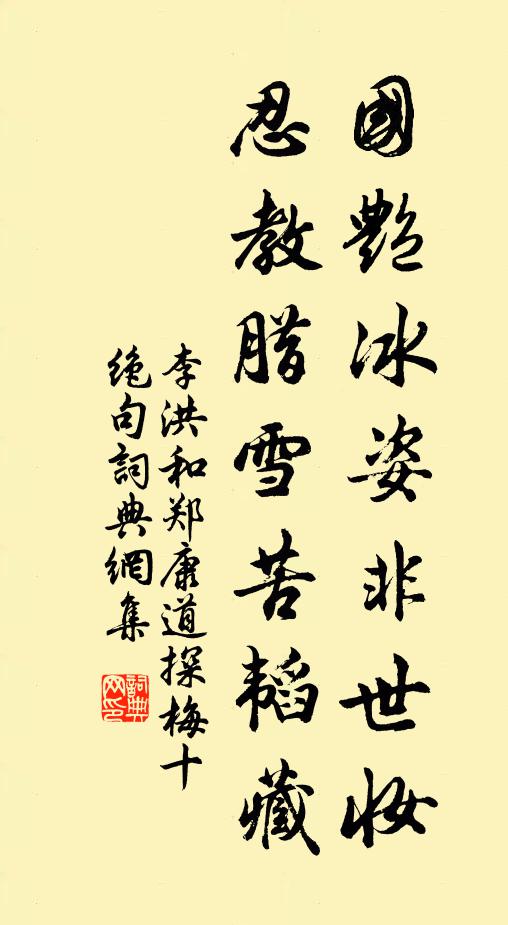 國艷冰姿非世妝
忍教腊雪苦韬藏
李洪和郑康道探梅十
絶句詞典網集
詞典网印